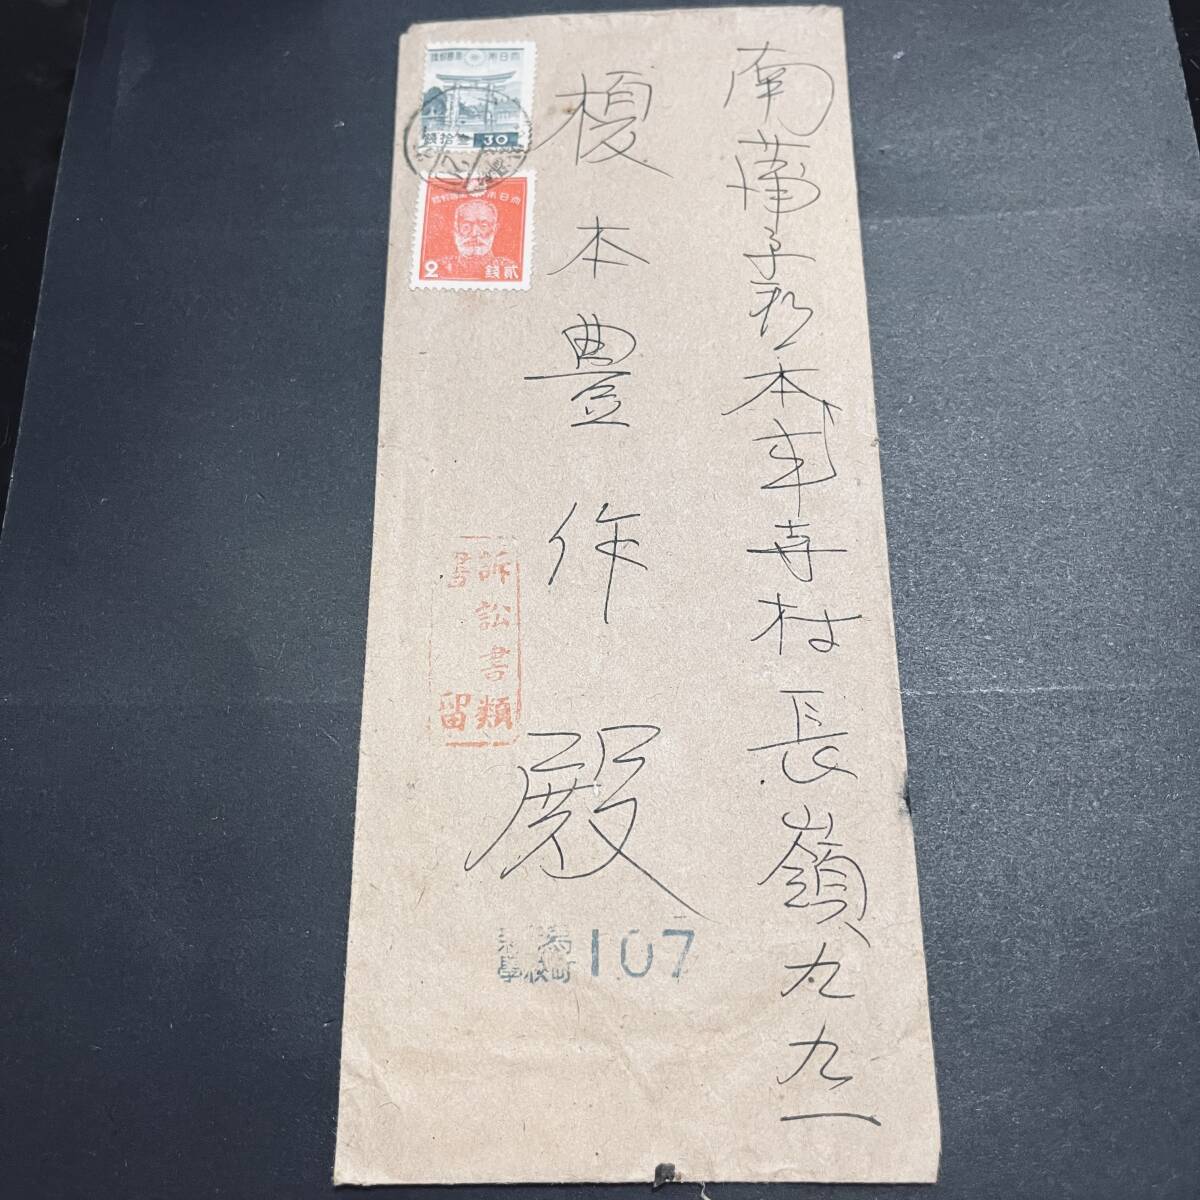 南蒲原郡本成寺村長嶺九九一
榎本豊作
殿
大日本帝国郵便
参拾銭 30
大日本帝国郵便
2 貳銭
訴訟書類
書留
新潟
學校町
107